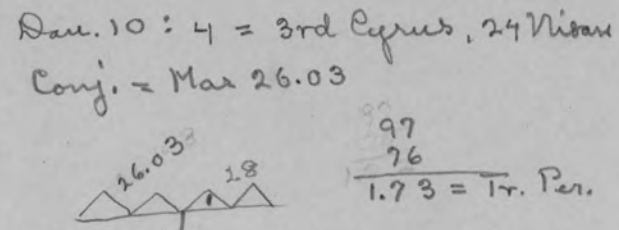 Dan. 10:4 = 3rd Cyrus, 24 Nisan
Conj. = Mar 26.03
26.03
28
97
76
1.73 = Tr. Per.